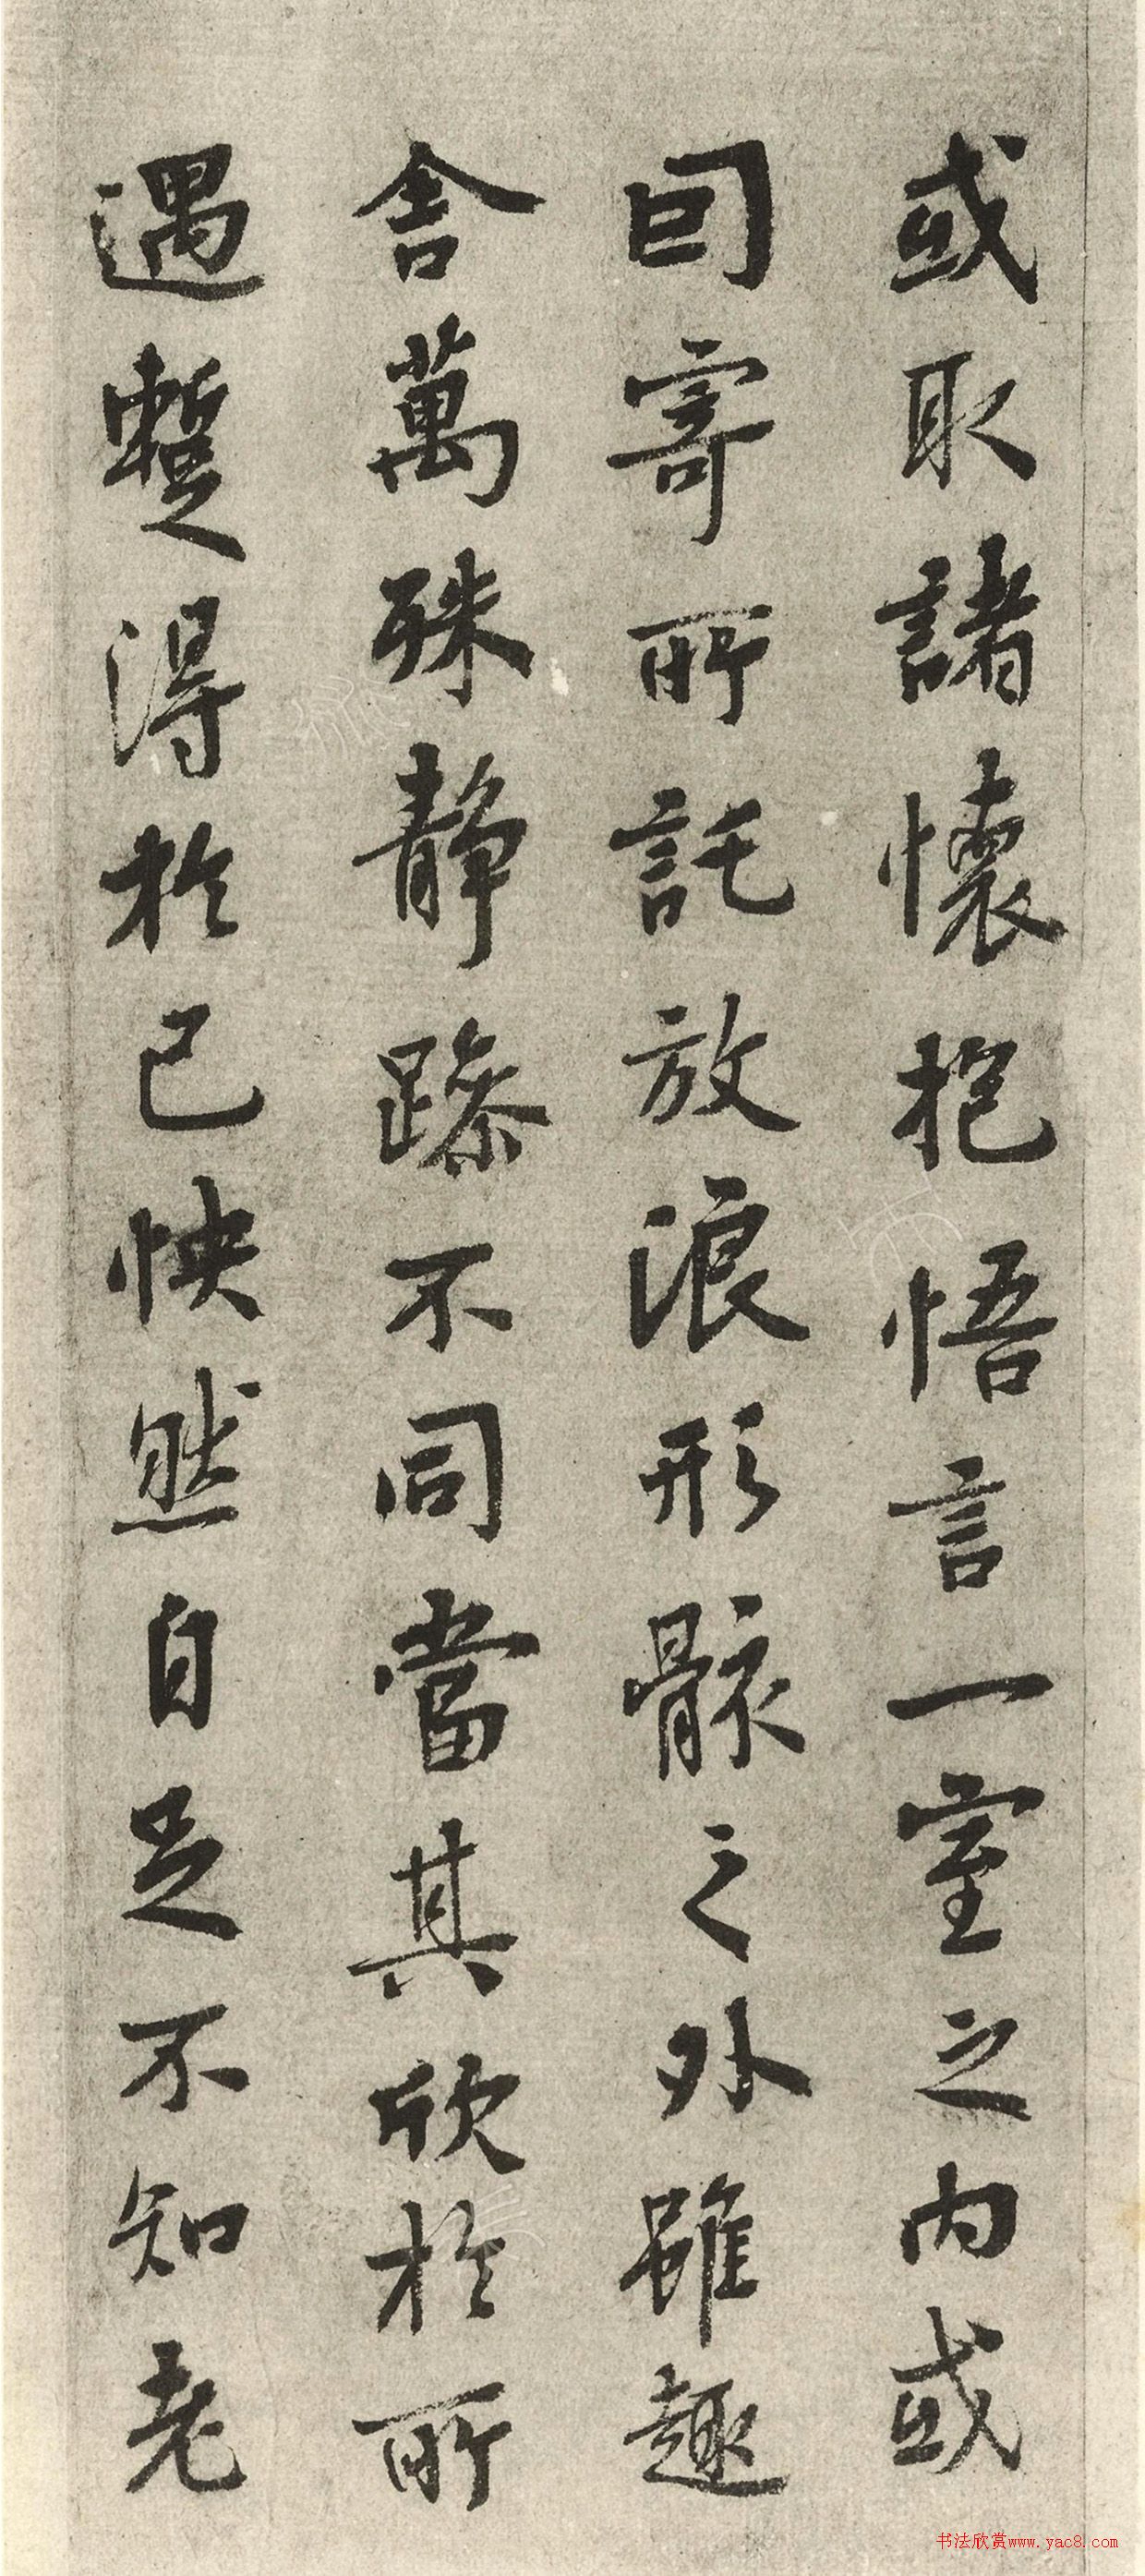 或取諸懷抱悟言一室之內或
囙寄所託放浪形骸之外雖趣
舍萬殊静躁不同當其欣於所
遇蹔得於己怏然自足不知老
书法欣赏www.yac8.com